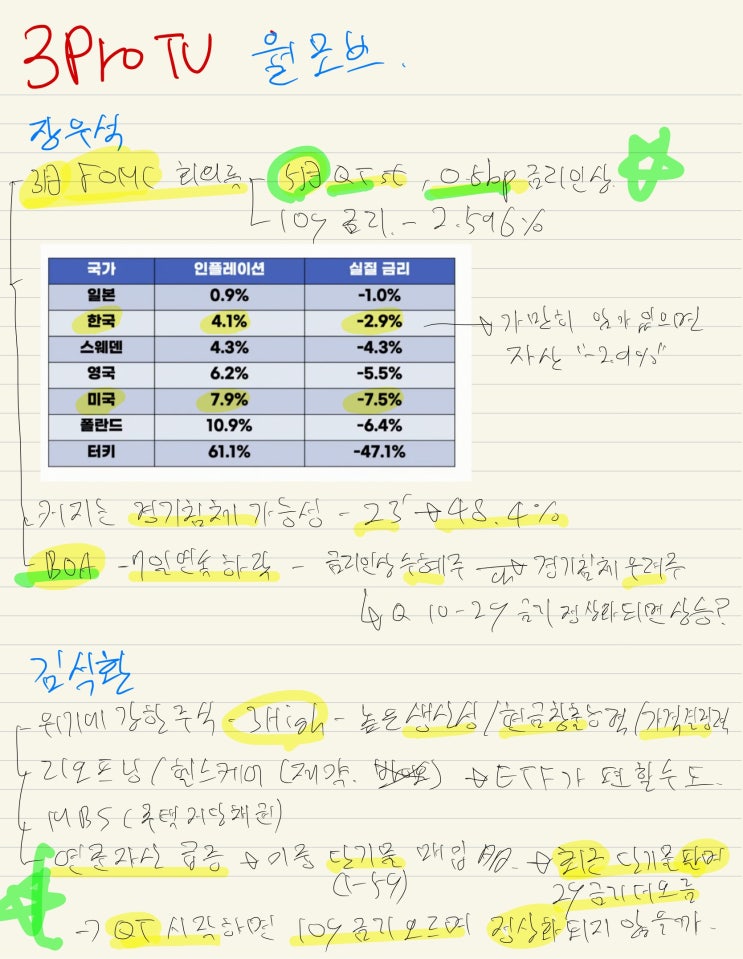 3Pro TV 월모브.
장우석
3월 FOMC 회의록 - 5월 QT st, 0.5bp 금리인상.
10y 금리. - 2.596%
국가 인플레이션 실질 금리
일본 0.9% -1.0%
한국 4.1% -2.9%
스웨덴 4.3% -4.3%
영국 6.2% -5.5%
미국 7.9% -7.5%
폴란드 10.9% -6.4%
터키 61.1% -47.1%
→ 가만히 앉아 있으면
자산 "-2.9%"
커지는 경기침체 가능성 - 23' → 48.4%
BOA - 7일연속 하락 - 금리인상 수혜주 → 경기침체 우려주
↳ Q 10-2y 금리 정상화되면 상승?
김석환
위기에 강한 주식 - 3High - 높은 생산성/현금창출능력/가격결정력
리오프닝/헬스케어 (제약. ) → ETF가 편할수도.
MBS (주택저당채권)
연준자산 급증 → 이중 단기물 매입 → 최근 단기물 판매
(1-5y) 2y 금리 더오름
→ QT 시작하면 10y 금리 오르며 정상화되지 않을까.